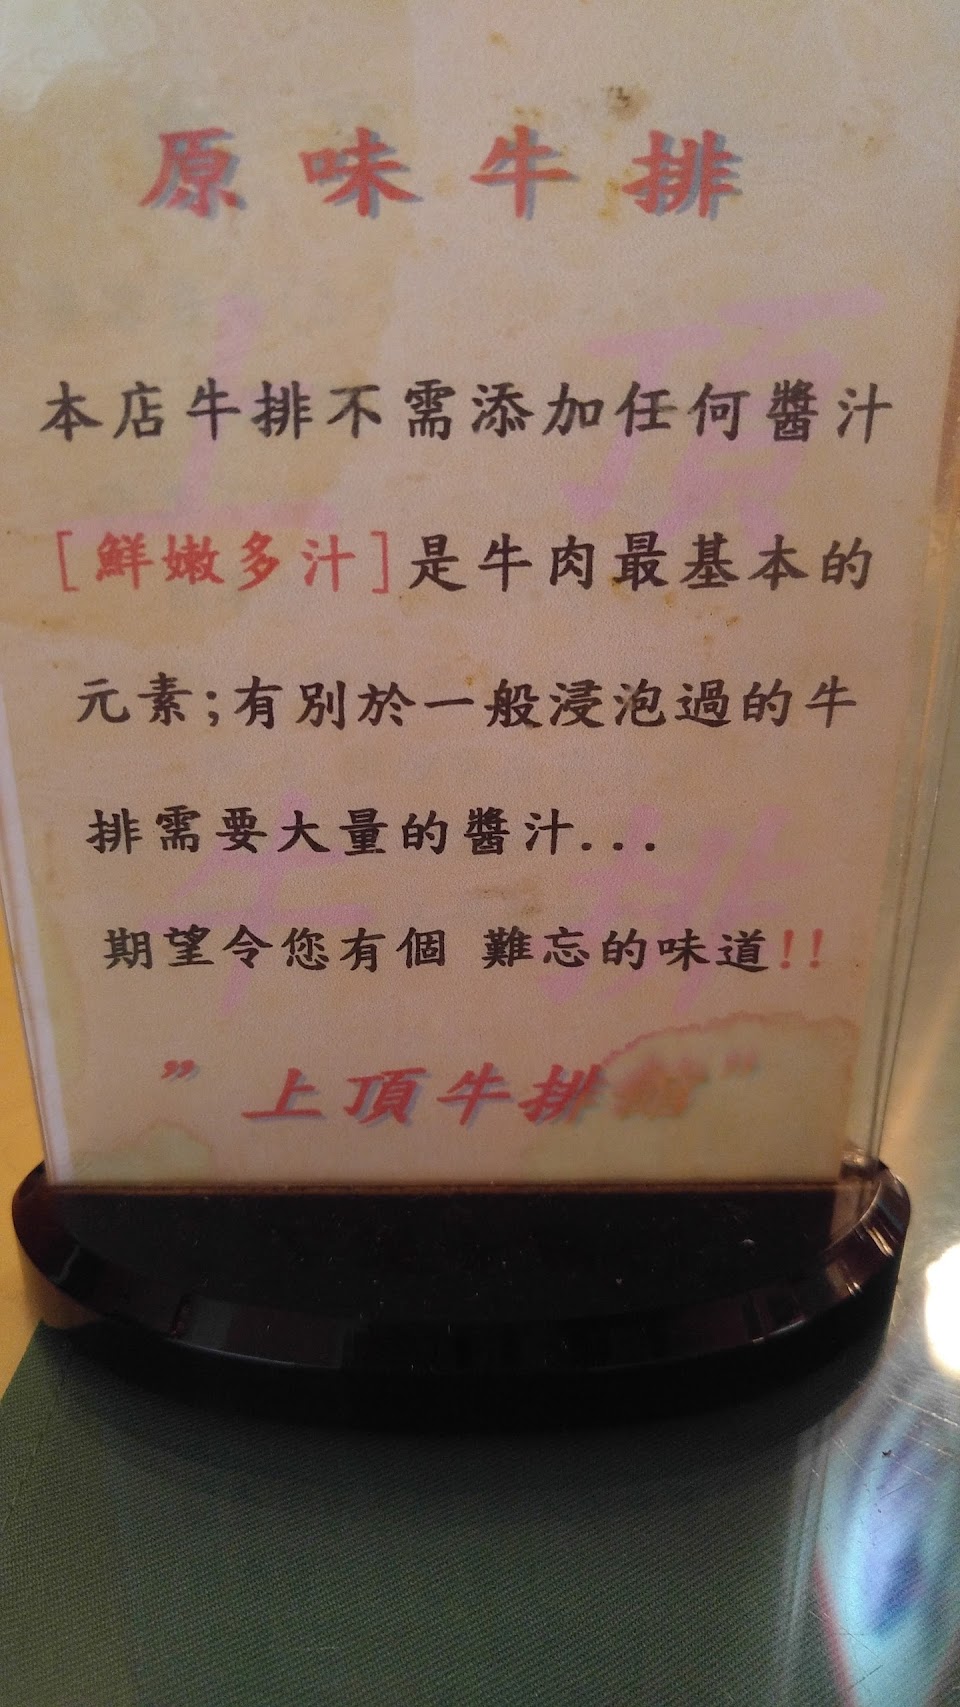 原味牛排
本店牛排不需添加任何醬汁
[鮮嫩多汁]是牛肉最基本的
元素;有別於一般浸泡過的牛
排需要大量的醬汁...
期望令您有個 難忘的味道!!
" 上頂牛排館"
上頂
牛排